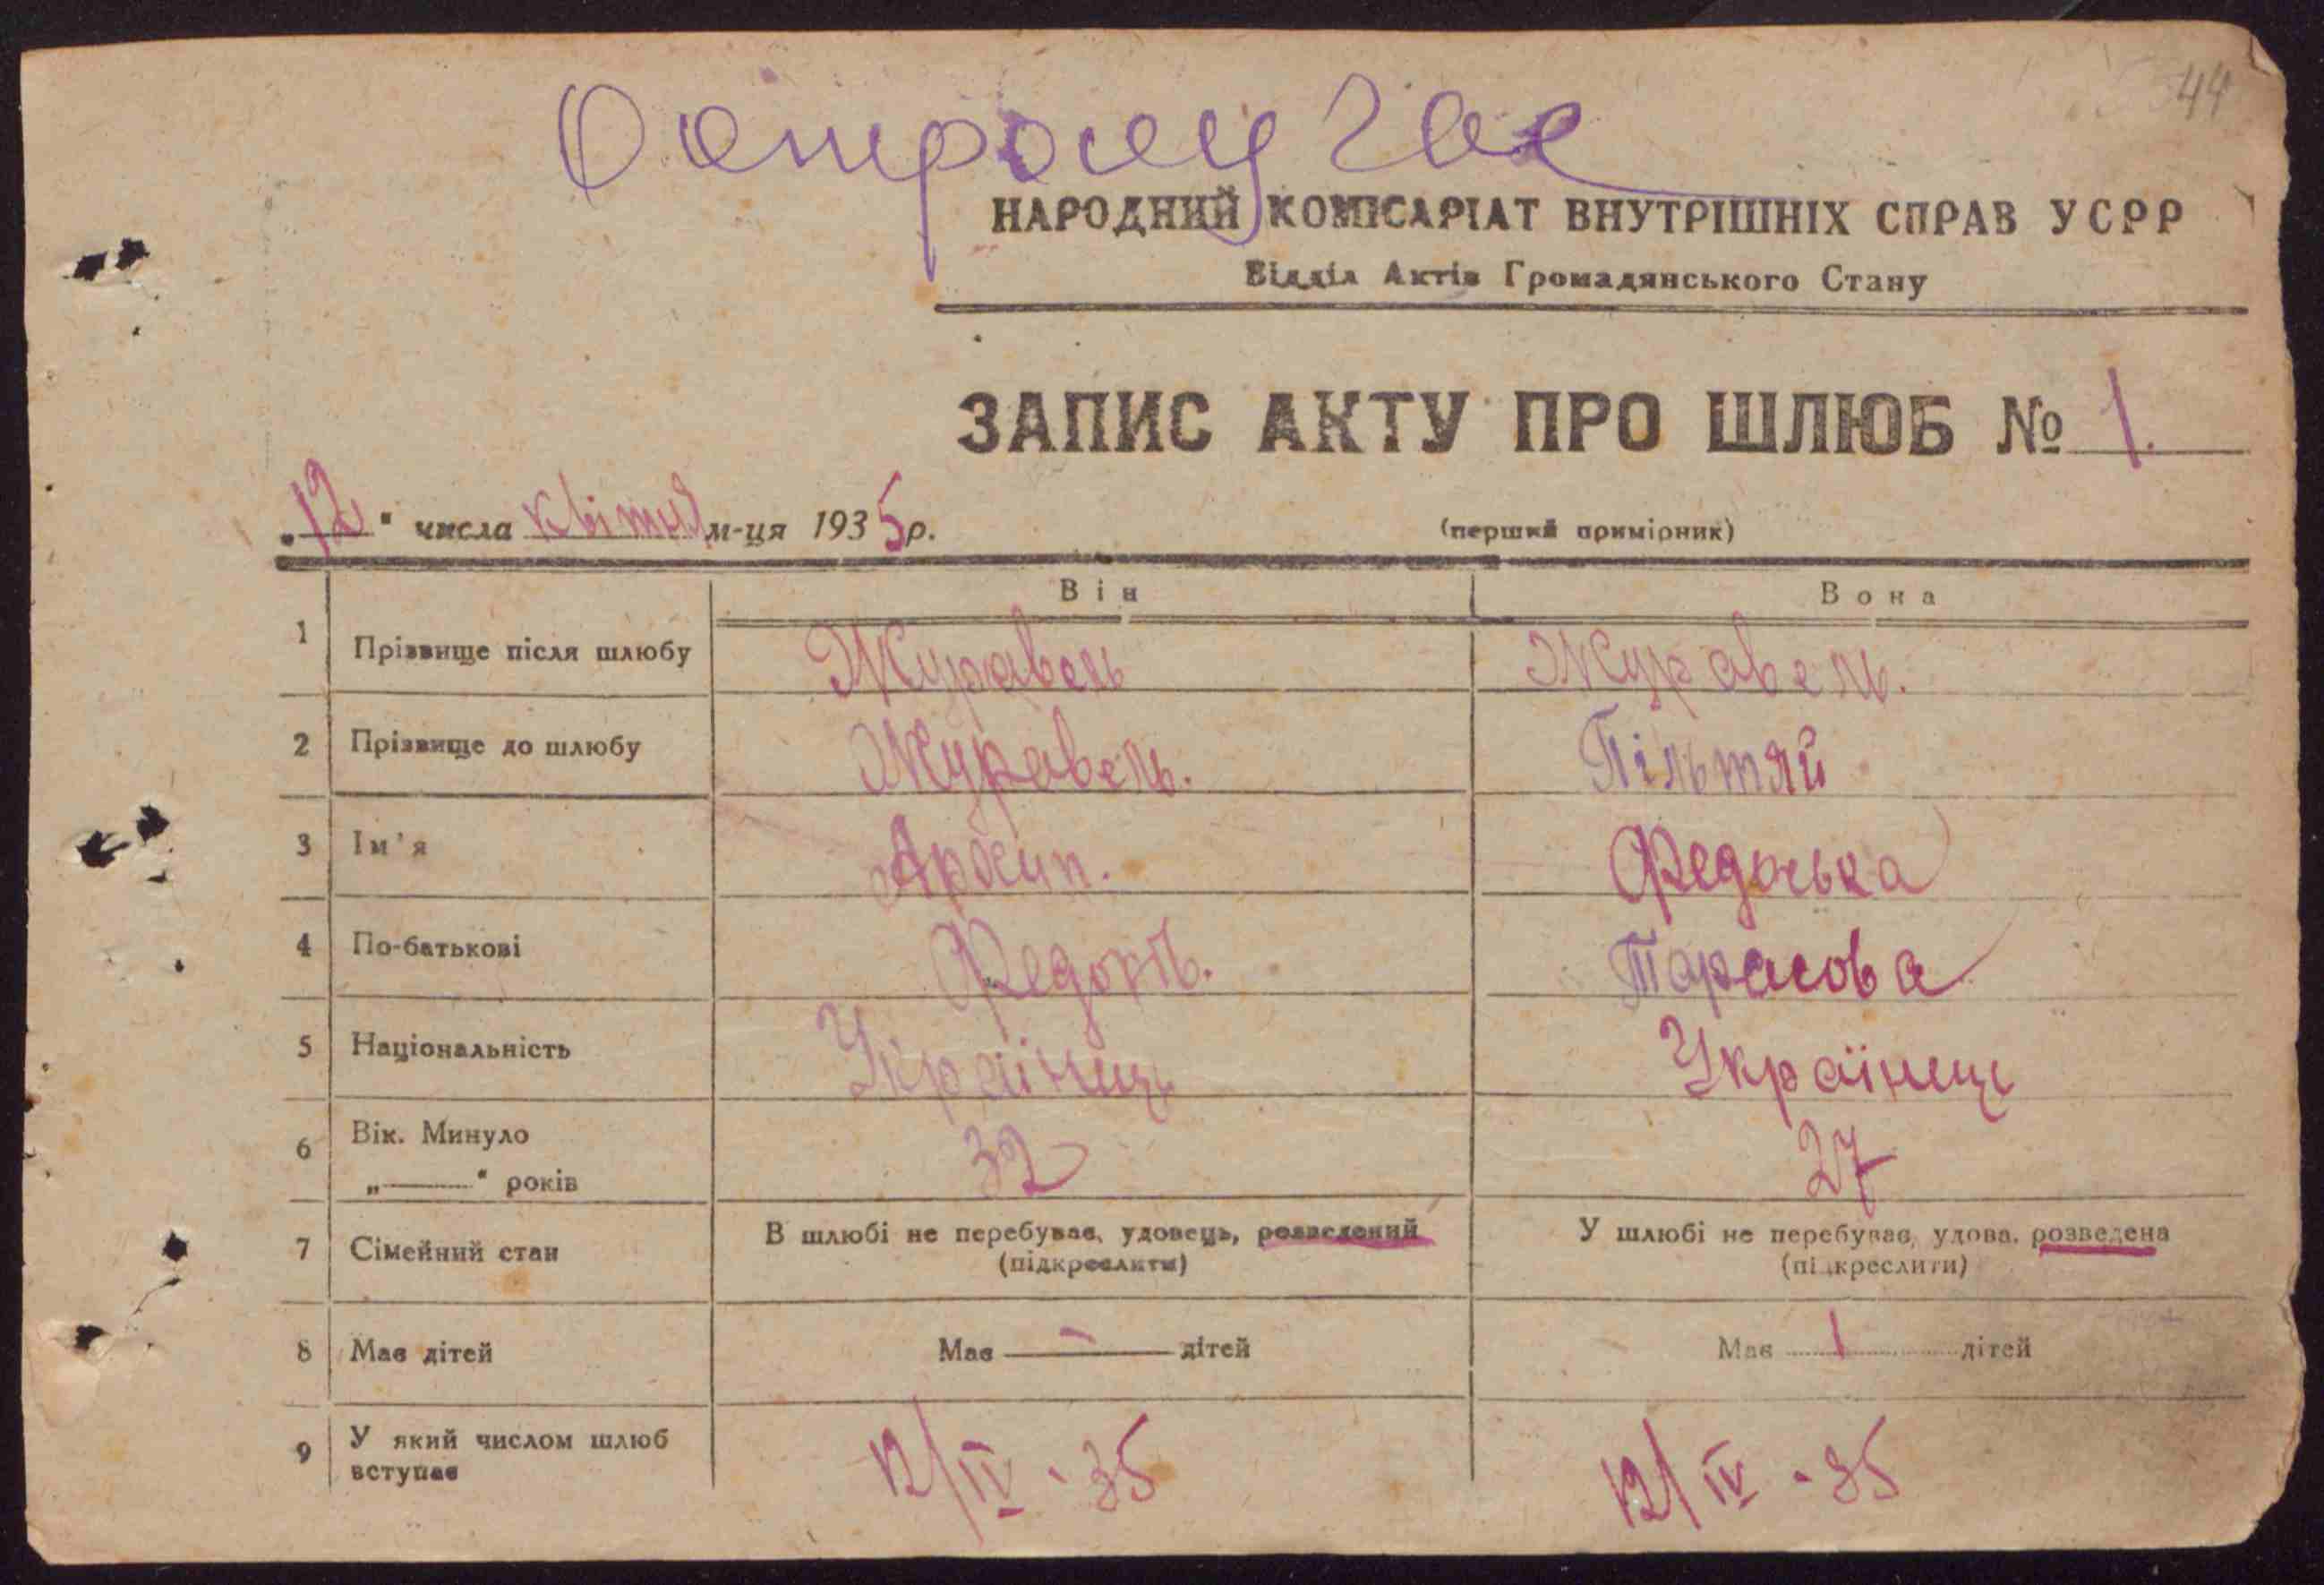 44
НАРОДНИЙ КОМІСАРІАТ ВНУТРІШНІХ СПРАВ УСРР
Відділ Актів Громадянського Стану
ЗАПИС АКТУ ПРО ШЛЮБ № 1.
„12" числа квітня м-ця 1935 р.
(перший примірник)
Він Вона
1 Прізвище після шлюбу Журавель Журавель.
2 Прізвище до шлюбу Журавель. Пільтяй
3 Ім'я Архип. Федоська
4 По-батькові Тарасова
5 Національність Українець Українець
6 Вік. Минуло 32 27
„———" років
7 Сімейний стан В шлюбі не перебуває, удовець, розведений У шлюбі не перебуває, удова, розведена
(підкреслити) (підкреслити)
8 Має дітей Має — дітей Має 1 дітей
9 У який числом шлюб
вступає 12/IV-35 12/IV-35